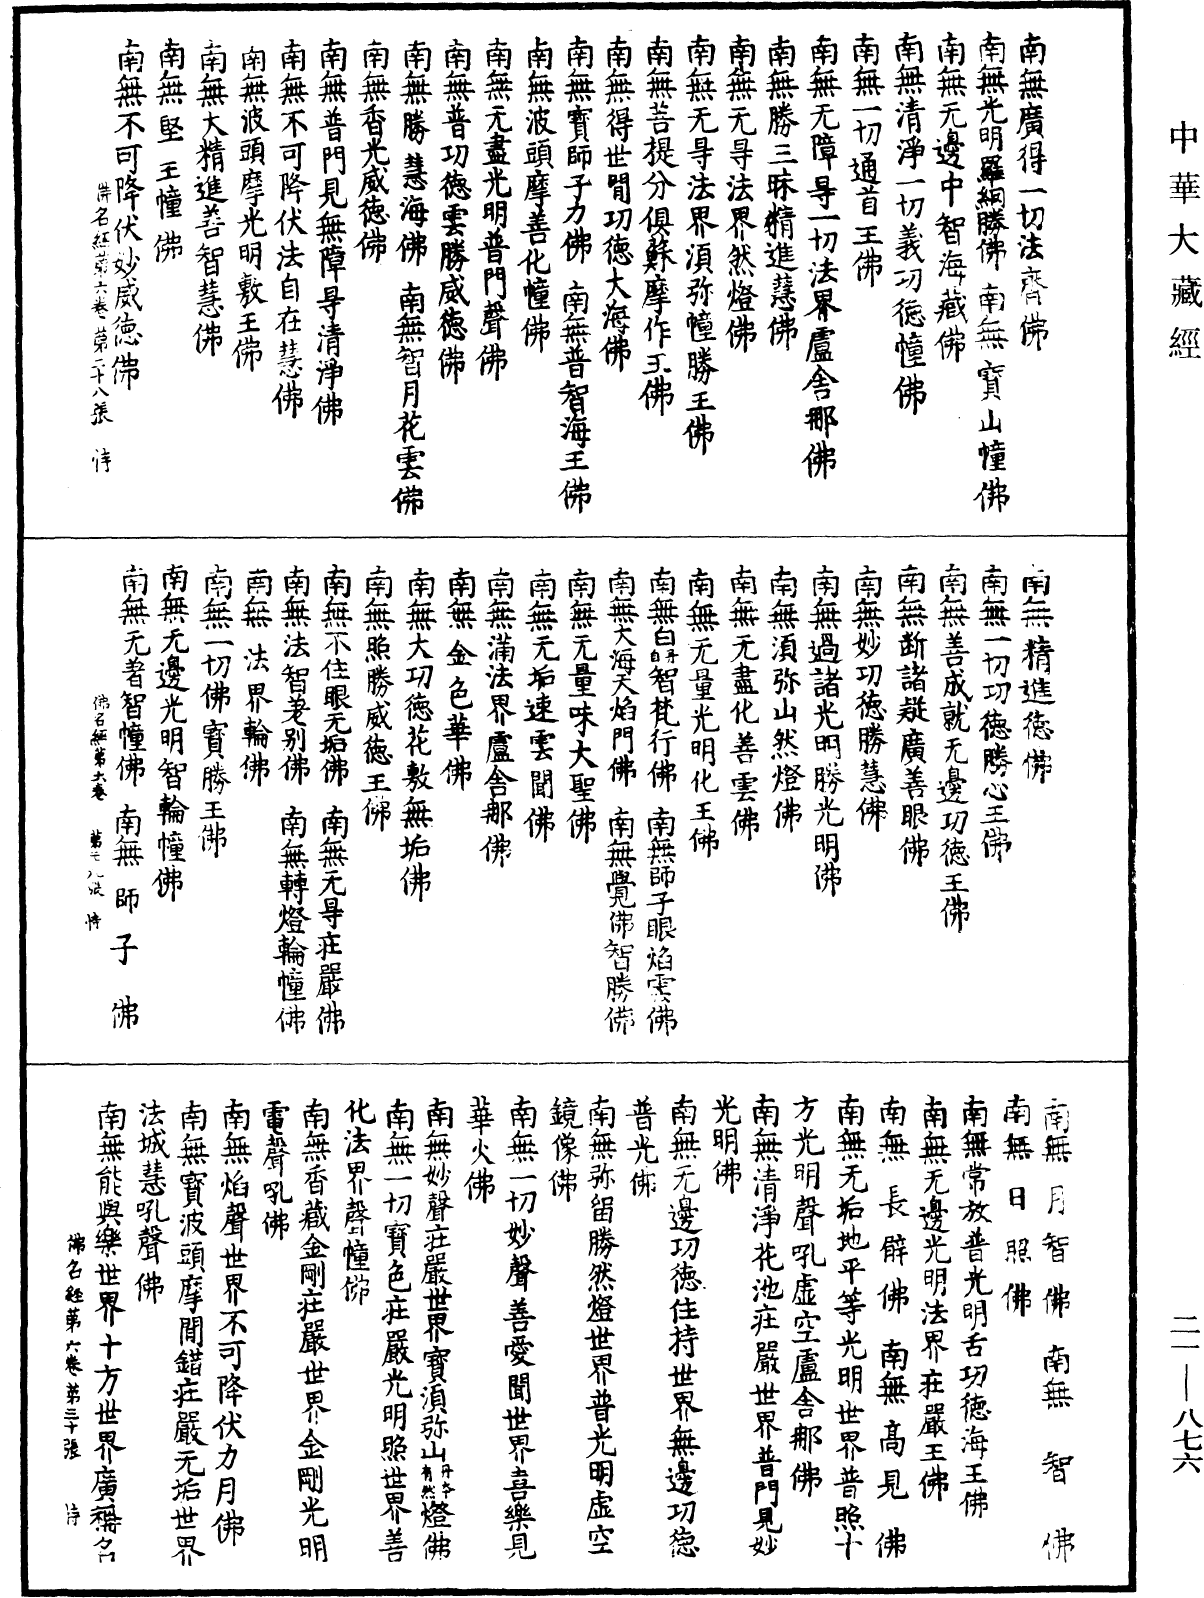 中華大藏經
南無廣得一切法齊佛
南無光明羅網勝佛 南無寶山幢佛
南無无邊中智海藏佛
南無清淨一切義功德幢佛
南無一切通首王佛
南無无障㝵一切法界盧舍那佛
南無勝三昧精進慧佛
南無无㝵法界然燈佛
南無无㝵法界須弥幢勝王佛
南無菩提分俱蘇摩作王佛
南無得世間功德大海佛
南無寶師子力佛 南無普智海王佛
南無波頭摩善化幢佛
南無无盡光明普門聲佛
南無普功德雲勝威德佛
南無勝慧海佛 南無智月花雲佛
南無香光威德佛
南無普門見無障㝵清淨佛
南無不可降伏法自在慧佛
南無波頭摩光明敷王佛
南無大精進善智慧佛
南無堅王幢佛
南無不可降伏妙威德佛
佛名經第六卷 第二十八張 恃
南無精進德佛
南無一切功德勝心王佛
南無善成就无邊功德王佛
南無断諸疑廣善眼佛
南無妙功德勝慧佛
南無過諸光明勝光明佛
南無須弥山然燈佛
南無无盡化善雲佛
南無无量光明化王佛
南無白丹自智梵行佛 南無師子眼焰雲佛
南無大海天焰門佛 南無覺佛智勝佛
南無无量味大聖佛
南無无垢速雲聞佛
南無滿法界盧舍那佛
南無金色華佛
南無大功德花敷無垢佛
南無照勝威德王佛
南無不住眼无垢佛 南無无㝵莊嚴佛
南無法智差别佛 南無轉燈輪幢佛
南無法界輪佛
南無一切佛寶勝王佛
南無无邊光明智輪幢佛
南無无著智幢佛 南無師子佛
佛名經第六卷 第二九張 恃
南無月智佛 南無智佛
南無日照佛
南無常放普光明舌功德海王佛
南無无邊光明法界莊嚴王佛
南無長臂佛 南無高見佛
南無无垢地平等光明世界普照十
方光明聲吼虛空盧舍那佛
南無清淨花池莊嚴世界普門見妙
光明佛
南無无邊功德住持世界無邊功德
普光佛
南無弥留勝然燈世界普光明虛空
鏡像佛
南無一切妙聲善愛聞世界喜樂見
華火佛
南無妙聲莊嚴世界寶須弥山丹本有然燈佛
南無一切寶色莊嚴光明照世界善
化法界聲幢佛
南無香藏金剛莊嚴世界金剛光明
電聲吼佛
南無焰聲世界不可降伏力月佛
南無寶波頭摩間錯莊嚴无垢世界
法城慧吼聲佛
南無能與樂世界十方世界廣稱名
佛名經第六卷 第三十張 恃
二一—八七六